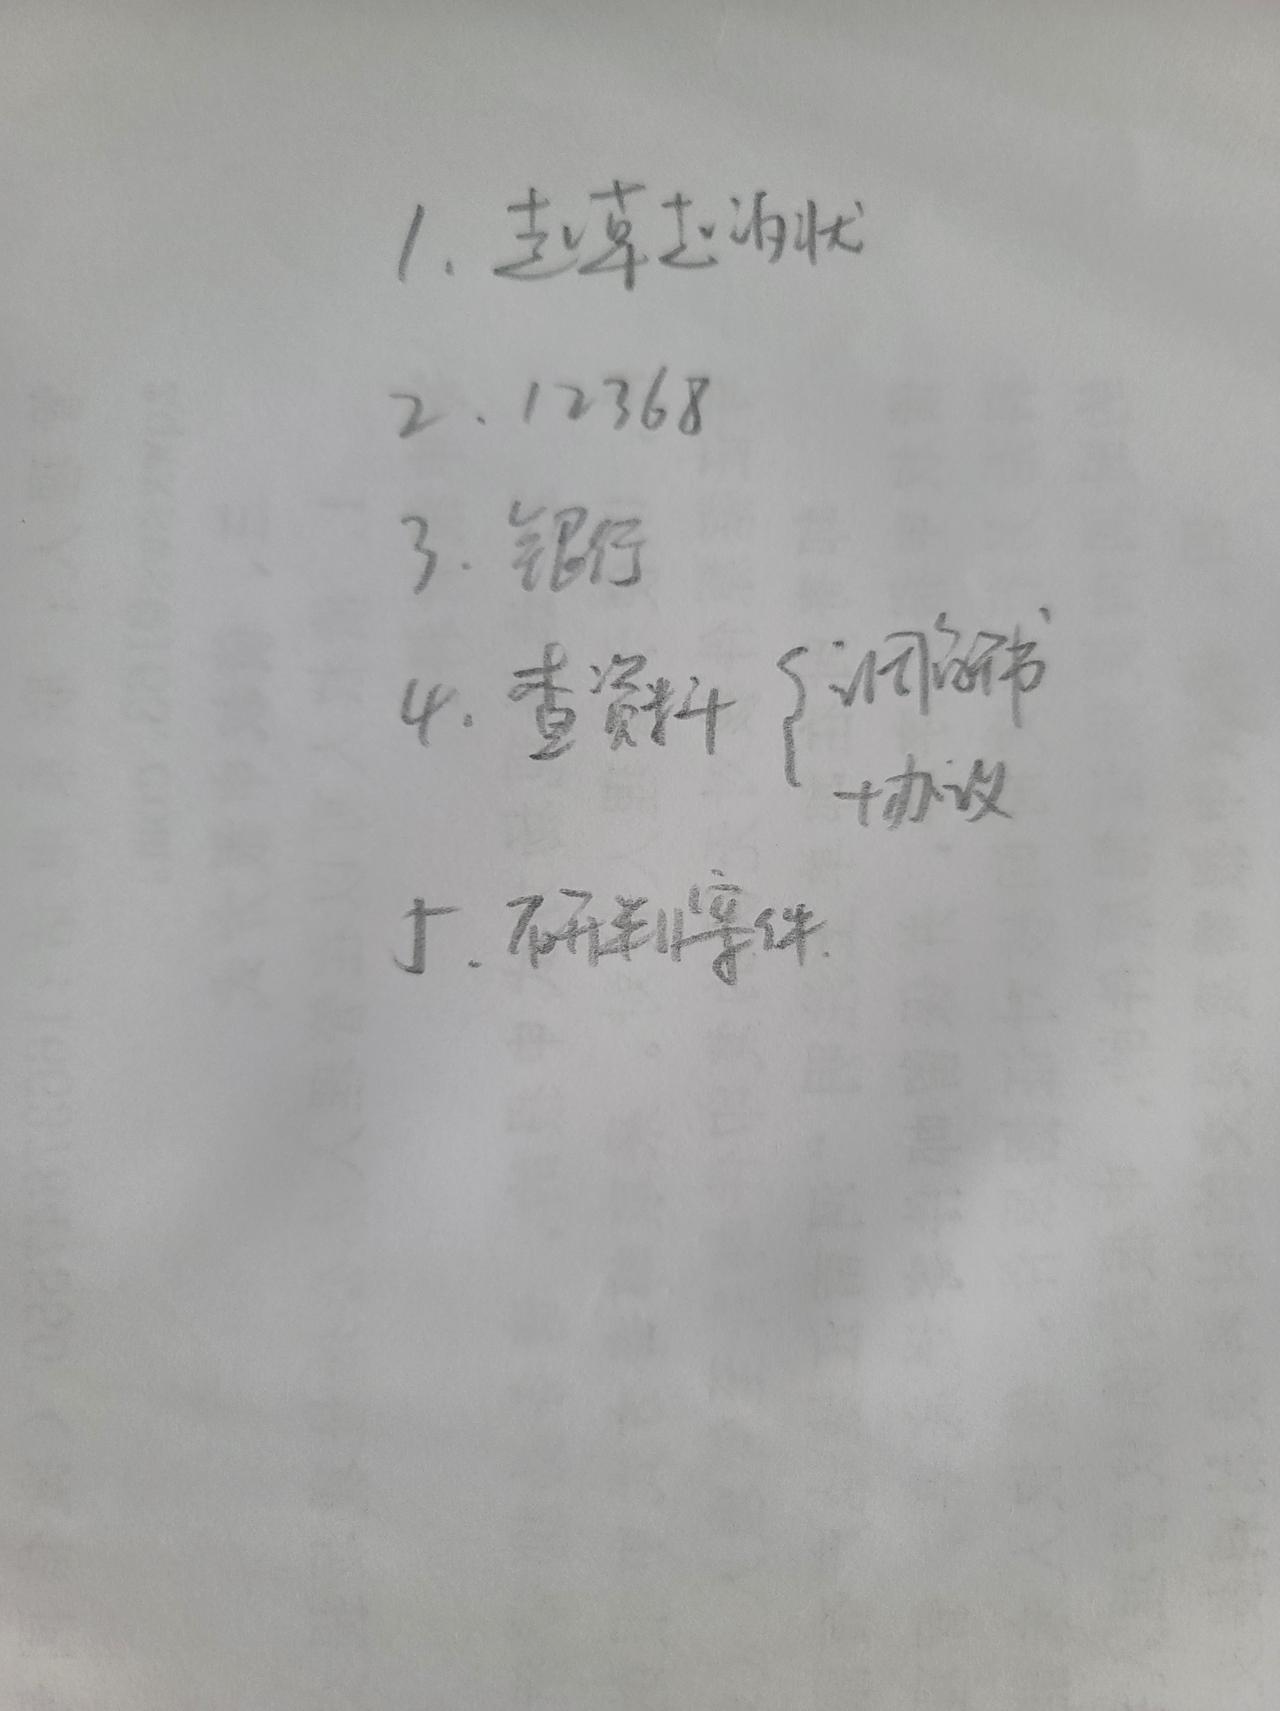 1. 起草起诉状
2. 12368
3. 银行
4. 查资料 { 调解书
+协议
5. 研判案件.